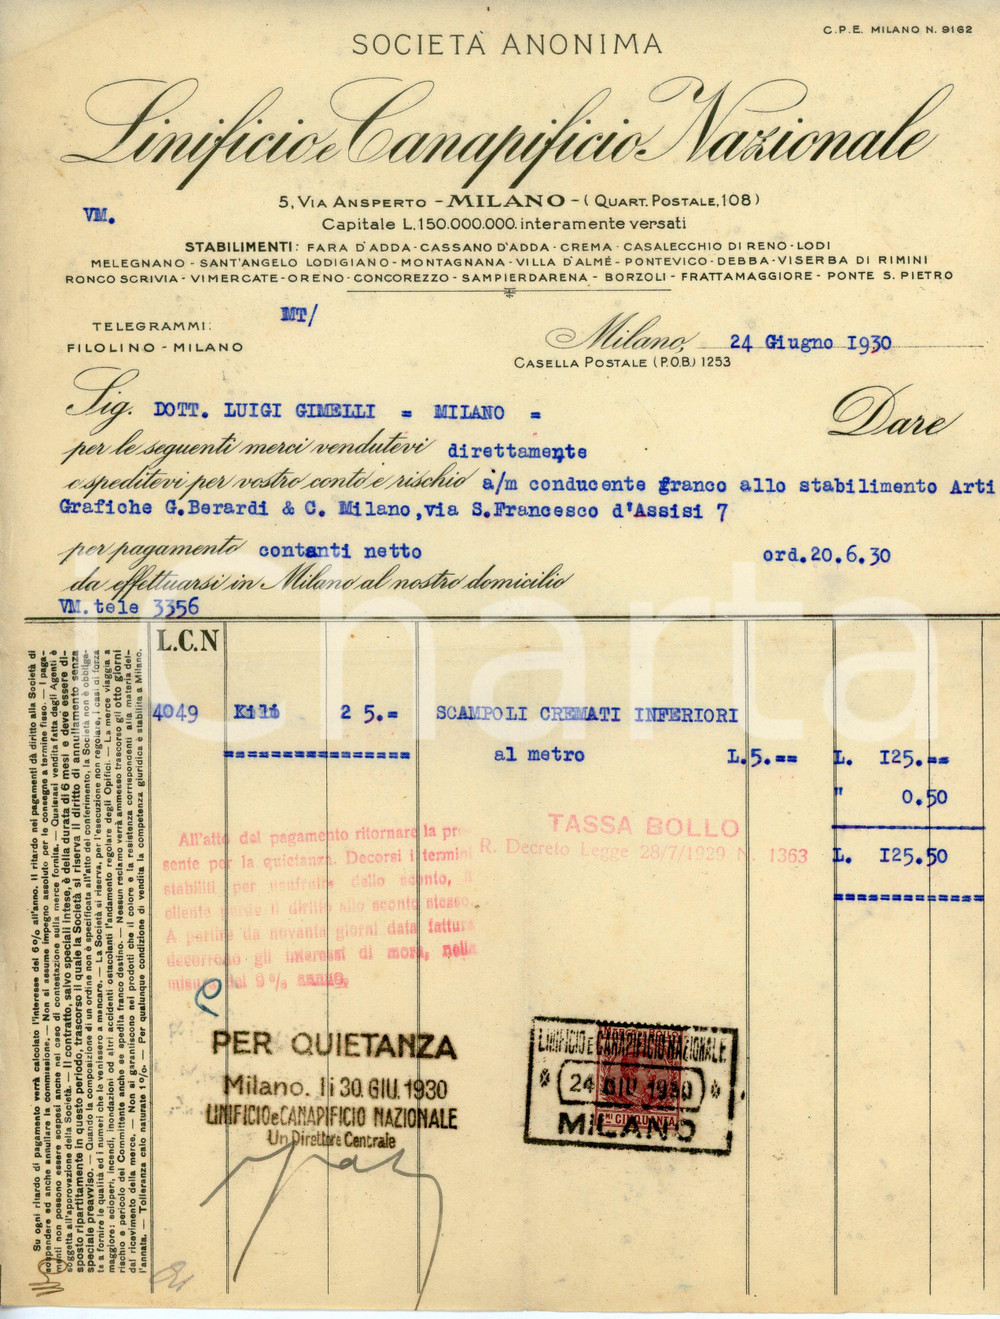 C.P.E. MILANO N. 9162
SOCIETÀ ANONIMA
Linificio e Canapificio Nazionale
5, VIA ANSPERTO - MILANO - ( QUART. POSTALE, 108 )
VM.
Capitale L. 150.000.000. interamente versati
STABILIMENTI: FARA D'ADDA - CASSANO D'ADDA - CREMA - CASALECCHIO DI RENO - LODI
MELEGNANO - SANT'ANGELO LODIGIANO - MONTAGNANA - VILLA D'ALMÉ - PONTEVICO - DEBBA - VISERBA DI RIMINI
RONCO SCRIVIA - VIMERCATE - ORENO - CONCOREZZO - SAMPIERDARENA - BORZOLI - FRATTAMAGGIORE - PONTE S. PIETRO
MT/
TELEGRAMMI:
FILOLINO - MILANO
Milano, 24 Giugno 1930
CASELLA POSTALE (P.O.B.) 1253
Sig. DOTT. LUIGI GIMELLI = MILANO =
Dare
per le seguenti merci vendutevi direttamente
e speditevi per vostro conto e rischio a/m conducente franco allo stabilimento Arti
Grafiche G.Berardi & C. Milano,via S.Francesco d'Assisi 7
per pagamento contanti netto ord.20.6.30
da effettuarsi in Milano al nostro domicilio
VM.tele 3356
Charta
L.C.N
4049 Kili 2 5.= SCAMPOLI CREMATI INFERIORI
al metro L.5.== L. 125.==
" 0.50
L. 125.50
TASSA BOLLO
R. Decreto Legge 28/7/1929 N. 1363
All'atto del pagamento ritornare la pre
sente per la quietanza. Decorsi i termini
stabiliti per usufruire dello sconto, il
cliente perde il diritto allo sconto stesso.
A partire da novanta giorni data fattura
decorrono gli interessi di mora, nella
misura del 9% annuo.
PER QUIETANZA
Milano. li 30 GIU. 1930
LINIFICIO e CANAPIFICIO NAZIONALE
Un Direttore Centrale
MARCA DA BOLLO
LINIFICIO E CANAPIFICIO NAZIONALE
24 GIU 1930
MILANO
CMI CINQUANTA
Su ogni ritardo di pagamento verrà calcolato l'interesse del 6% all'anno. Il ritardo nei pagamenti dà diritto alla Società di
sospendere ed anche annullare la commissione. — Non si assume impegno assoluto per le consegne a termine fisso. — I paga-
menti non possono essere sospesi anche nel caso di contestazione sulla merce fornita. — Qualsiasi vendita fatta dagli Agenti è
soggetta all'approvazione della Società. — Il contratto, salvo speciali intese, è della durata di 6 mesi e deve essere di-
sposto ripartitamente in questo periodo, trascorso il quale la Società si riserva il diritto di annullamento senza
speciale preavviso. — Quando la composizione di un ordine non è specificata all'atto del conferimento, la Società non è obbliga-
ta a fornire le qualità ed i numeri che le venissero a mancare. — La Società si riserva, per l'esecuzione non regolare, i casi di forza
maggiore: scioperi, incendi, inondazioni od altri accidenti ostacolanti l'andamento regolare degli Opifici. — La merce viaggia a
rischio e pericolo del Committente anche se spedita franco destino. — Nessun reclamo verrà ammesso trascorso gli otto giorni
dal ricevimento della merce. — Non si garantiscono nei prodotti che il colore e la resistenza corrispondenti alla materia del-
l'annata. — Tolleranza calo naturale 1%. — Per qualunque condizione di vendita la competenza giuridica è stabilita a Milano.